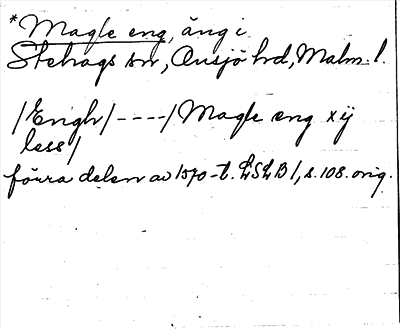 *Magle eng, äng i
Stehags sn, Onsjö hd, Malm. l.
/Engh/----/Magle eng xij
less/
förra delen av 1570-t. LSLB 1, s. 108. orig.